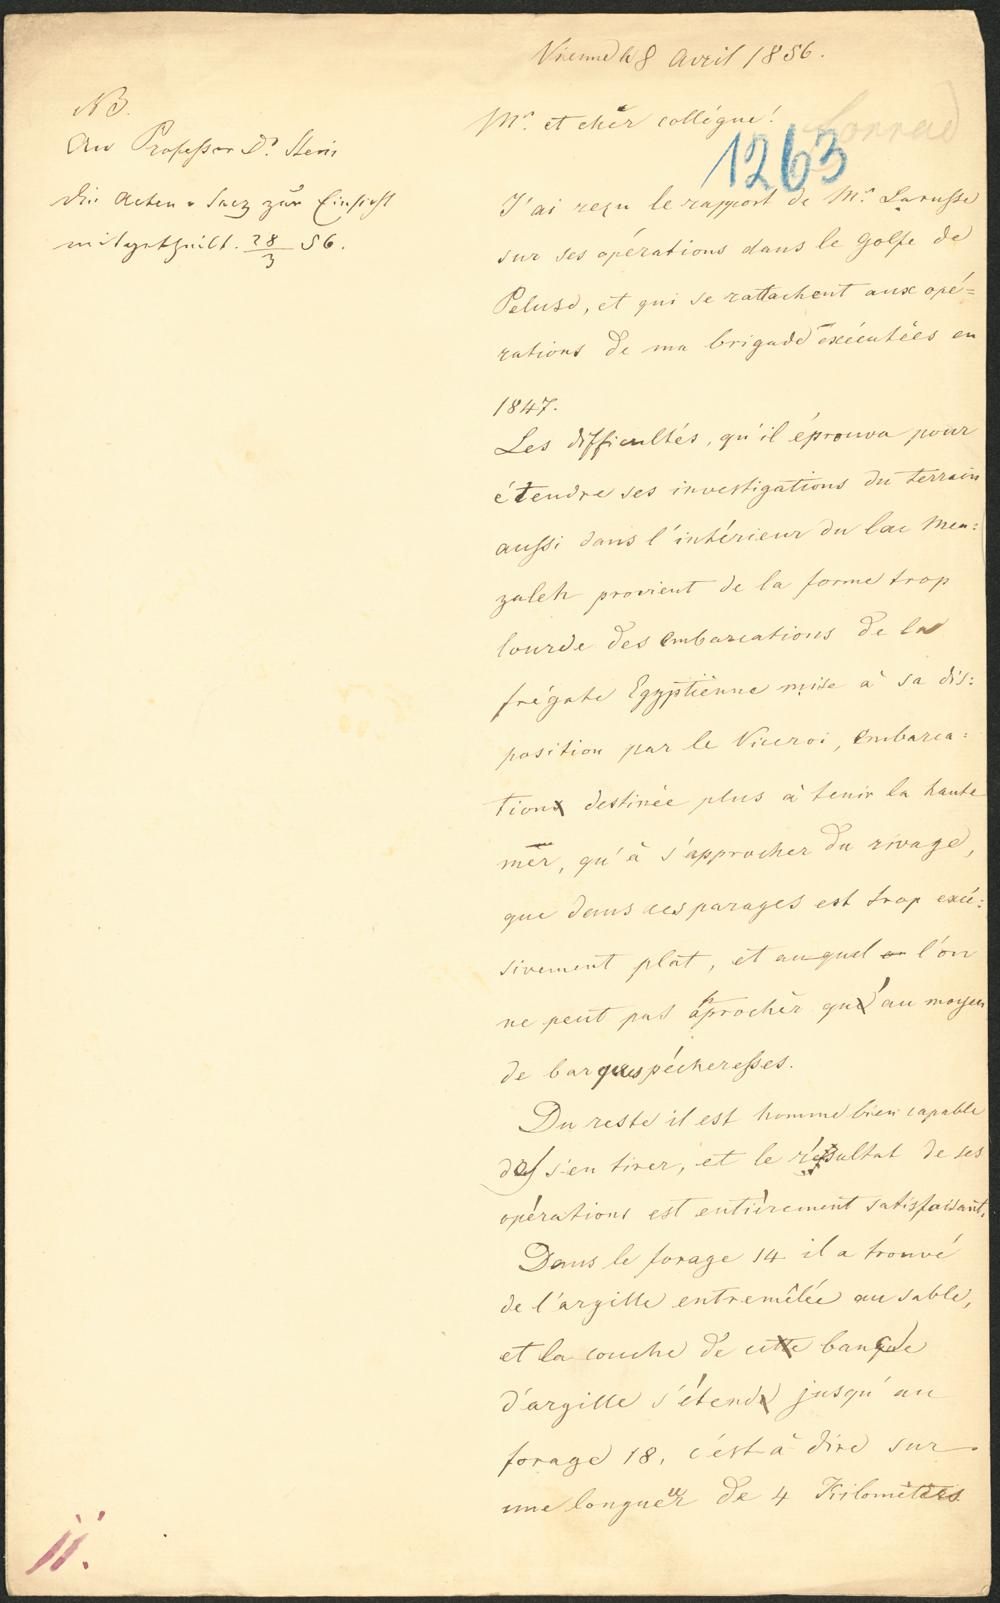 Vienne le 8 Avril 1856.
NB.
An Professor Dr. Stein
die Acten = Satz zur Einsicht
mitgetheilt. 28/3 56.
Mr. et cher collégue!
Conrad
1263
J'ai reçu le rapport de Mr. Larousse
sur ses opérations dans le golfe de
Peluse, et qui se rattachent aux opé=
rations de ma brigade exécutées en
1847.
Les difficultés, qu'il éprouva pour
étendre ses investigations du terrain
aussi dans l'intérieur du lac Men=
zaleh provient de la forme trop
lourde des embarcations de la
frégate Egyptienne mise à sa dis=
position par le Viceroi, embarca=
tions destinée plus à tenir la haute
mer, qu'à s'approcher du rivage,
que dans ces parages est trop excé=
sivement plat, et auquel l'on
ne peut pas aprocher qu'au moyen
de barques pécheresses.
Du reste il est homme bien capable
de s'en tirer, et le résultat de ses
opérations est entièrement satisfaisant.
Dans le forage 14 il a trouvé
de l'argille entremêlée au sable,
et la couche de cette banque
d'argille s'étend jusqu'au
forage 18, c'est à dire sur
une longueur de 4 Kilomètres
ii.